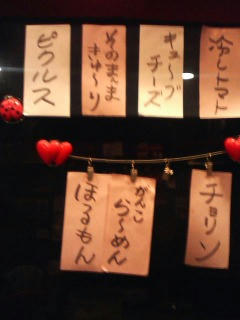 冷しトマト
キューブ
チーズ
そのまんま
きゅ〜り
ピクルス
チョリソ
がんこ
らーめん
ほるもん